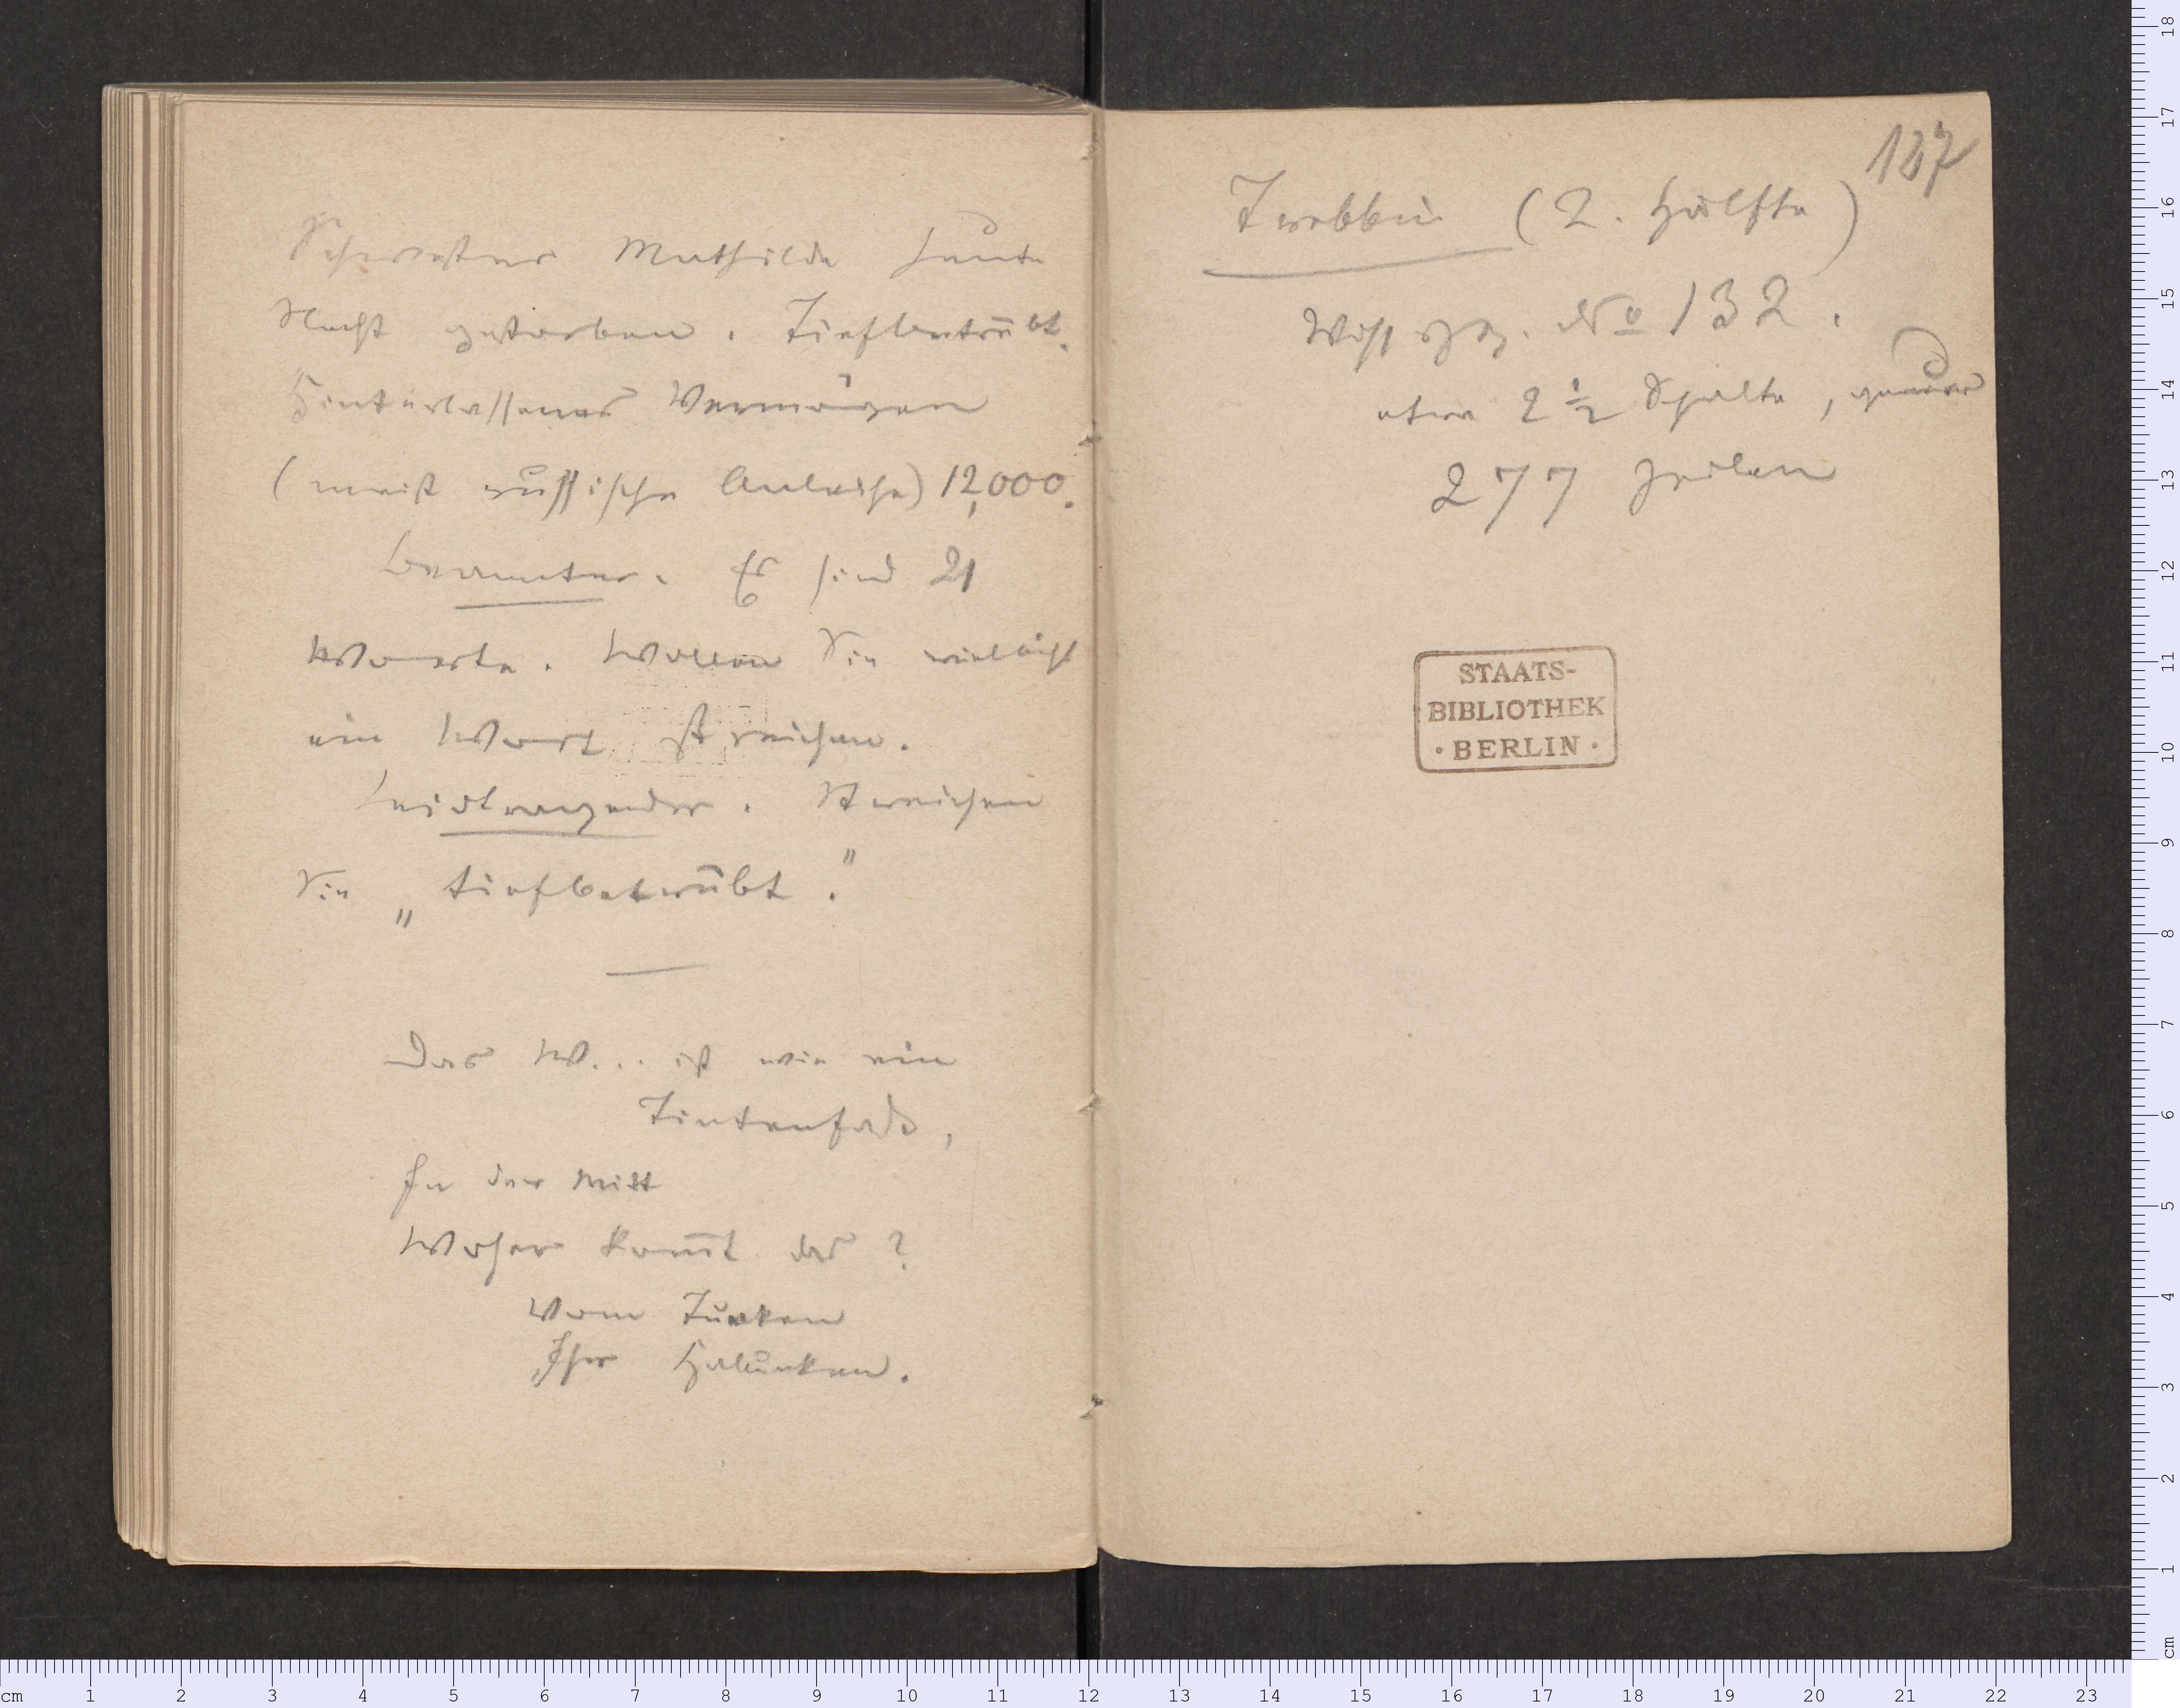 Schwester Mathilde heute
Nacht gestorben. Tiefbetrübt.
Hinterlassenes Vermögen
(meist russische Anleihe) 12,000.
Beamter. Es sind 21
Worte. Wollen Sie vielleicht
ein Wort streichen.
Leidtragender. Streichen
Sie „tiefbetrübt."
Das W... ist wie ein
Tintenfaß,
In der Mitt
Woher kom̄t das?
Vom Tunken
Ihr Halunken.
137
Trebbin (2. Hälfte)
No 132.
etwa 2 1/2 Spalte, genauer
277 Zeilen
STAATS-
BIBLIOTHEK
· BERLIN ·